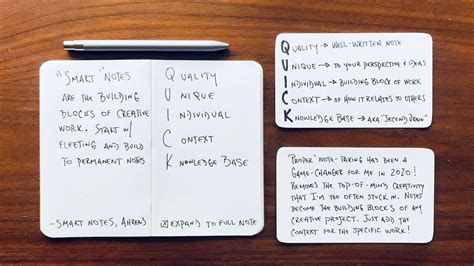 "Smart" Notes
are the building
blocks of creative
work. Start w/
fleeting and build
to permanent notes
—Smart Notes, Ahrens
Quality
Unique
Individual
Context
Knowledge Base
☒ Expand to full note
Quality → well-written note
Unique → to your perspective & ideas
Individual → building block of work
Context → of how it relates to others
Knowledge Base → aka "Second Brain"
"Proper" note-taking has been a
game-changer for me in 2020!
Removes the top-of-mind creativity
that I'm too often stuck in. Notes
become the building blocks of any
creative project. Just add the
context for the specific work!